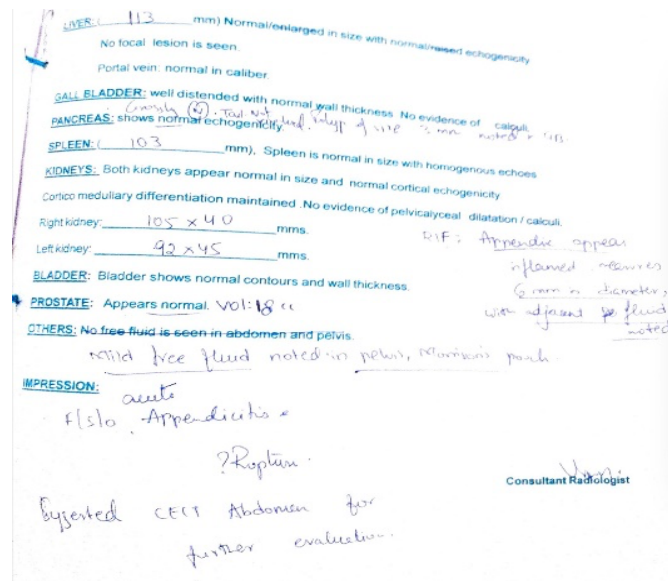 LIVER: ( 113 mm) Normal/enlarged in size with normal/raised echogenicity
No focal lesion is seen.
Portal vein: normal in caliber.
GALL BLADDER: well distended with normal wall thickness No evidence of calculi.
Polyp of size 3 mm noted in GB
Grossly (N). Tail Not
PANCREAS: shows normal echogenicity
SPLEEN: ( 103 mm), Spleen is normal in size with homogenous echoes
KIDNEYS: Both kidneys appear normal in size and normal cortical echogenicity
Cortico medullary differentiation maintained .No evidence of pelvicalyceal dilatation / calculi.
Right kidney: 105 x 40 mms.
Left kidney: 92 x 45 mms.
RIF: Appendix appears
inflamed measures
6 mm in diameter,
with adjacent fluid
noted
BLADDER: Bladder shows normal contours and wall thickness.
PROSTATE: Appears normal. Vol: 18 cc
OTHERS: No free fluid is seen in abdomen and pelvis.
Mild free fluid noted in pelvis, Morrison's pouch.
IMPRESSION:
acute
F/s/o Appendicitis
? Rupture.
Suggested CECT Abdomen for
further evaluation.
Consultant Radiologist